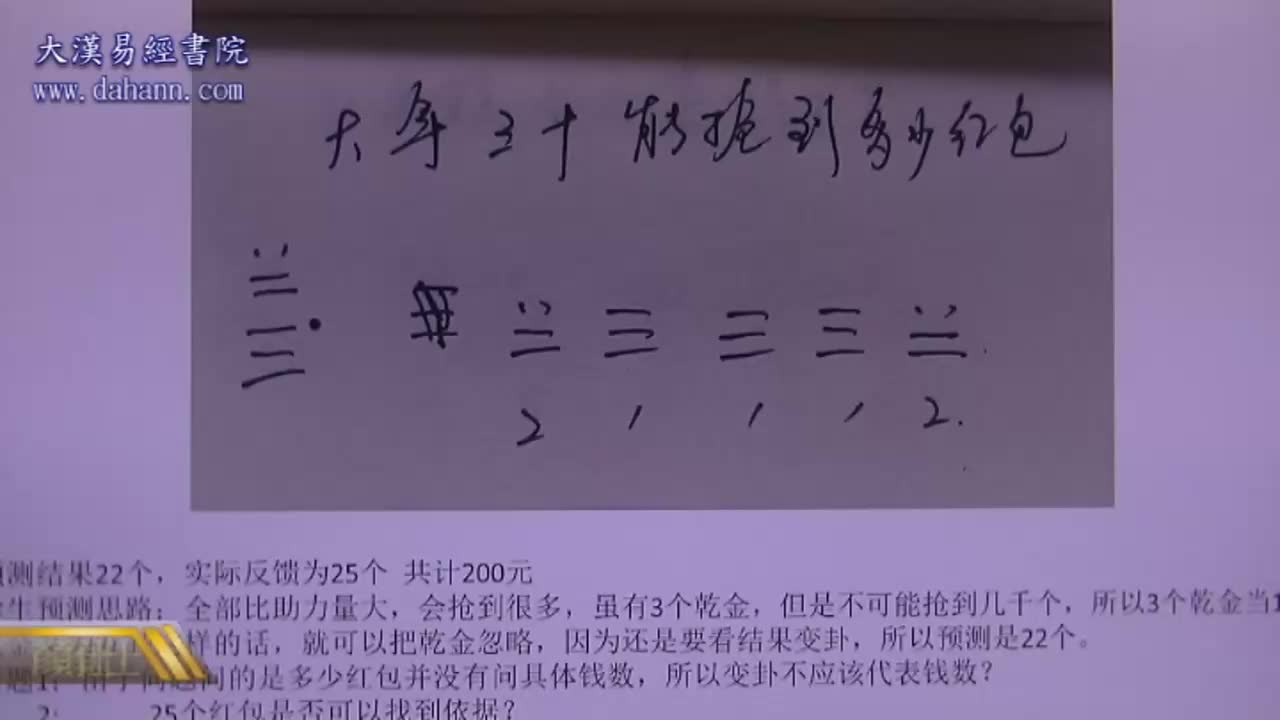 大漢易經書院
www.dahann.com
大年三十能抢到多少红包
2 1 1 1 2.
测结果22个，实际反馈为25个 共计200元
生预测思路：全部比助力量大，会抢到很多，虽有3个乾金，但是不可能抢到几千个，所以3个乾金当1
样的话，就可以把乾金忽略，因为还是要看结果变卦，所以预测是22个。
问的是多少红包并没有问具体钱数，所以变卦不应该代表钱数？
2: 25个红包是否可以找到依据？